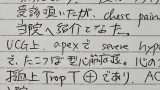 受診頂いたが、chest pain
当院へ紹介となた。
UCG上、apexで severe hyp
で、たこつぼ型心筋症、心の
採血上 Trop T ⊕であり、AC